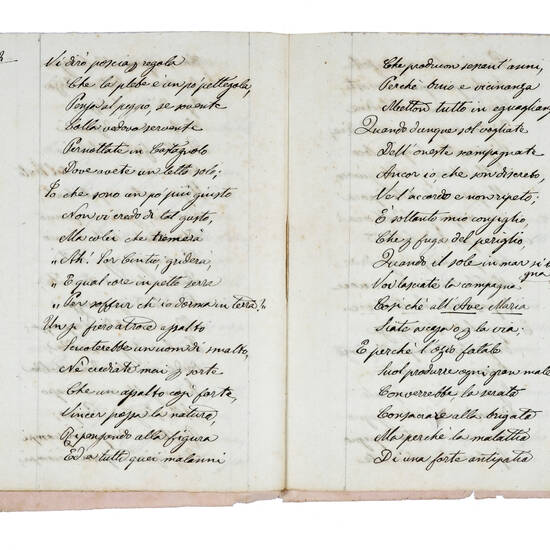 Vi dirò poscia p regola
Che la plebe è un pò pettegola,
Pensa al peggio, se sovente
Colla vedova servente
Pernottate in Castagnolo
Dove avete un letto solo;
Io che sono un po più giusto
Non vi credo di tal gusto,
Ma colei che tremerà
„ Ah! Sor Cintio, griderà,
„ E qual core in petto serra
„ Per soffrir ch'io dorma in terra?„
Un sì fiero atroce assalto
Scuoterebbe un uom di smalto,
Nè crediate mai p sorte
Che un assalto così forte,
Vincer possa la natura,
Risponendo alla figura
Ed a tutti quei malanni
Che producon sessant'anni,
Perchè buio e vicinanza
Metton tutto in eguaglianz
Quando dunque sol vogliate
Dell'oneste scampagnate
Ancor io, che son discreto,
Ve l'accordo e non ripeto;
E' soltanto mio consiglio,
Che p fuga del periglio,
Quando il sole in mar si bagna
Voi lasciate la compagna
Così chè all'Ave Maria
Siate accaso p la via;
E perchè l'ozio fatale
Suol produrre ogni gran male
Converrebbe la serata
Consacrare alla brigata
Ma perchè la malattia
Di una forte antipatia